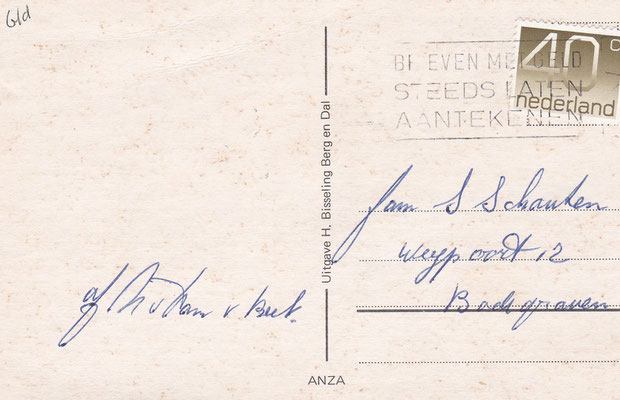 Gld
40 c
nederland
BRIEVEN MET GELD
STEEDS LATEN
AANTEKENEN
Uitgave H. Bisseling Berg en Dal
Fam S Schouten
Weypoort 12
Bodegraven
af
ANZA